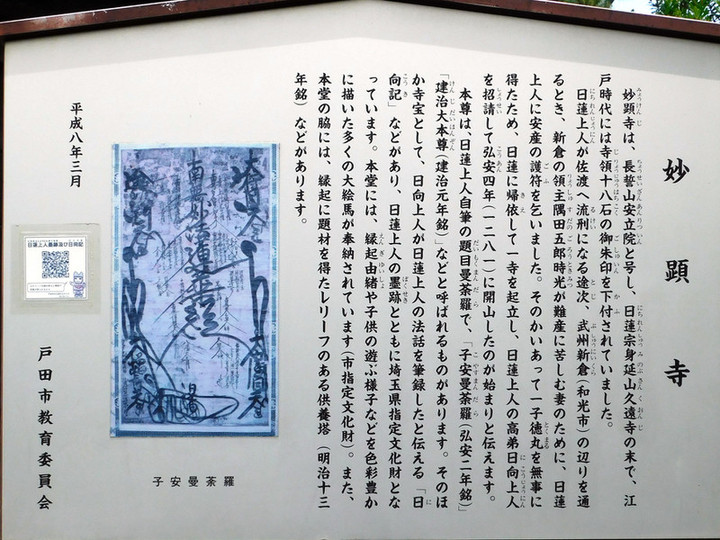 妙顕寺
妙顕寺は、長誓山安立院と号し、日蓮宗身延山久遠寺の末で、江
戸時代には寺領十八石の御朱印を下付されていました。
日蓮上人が佐渡へ流刑になる途次、武州新倉（和光市）の辺りを通
るとき、新倉の領主隅田五郎時光が難産に苦しむ妻のために、日蓮
上人に安産の護符を乞いました。そのかいあって一子徳丸を無事に
得たため、日蓮に帰依して一寺を起立し、日蓮上人の高弟日向上人
を招請して弘安四年（一二八一）に開山したのが始まりと伝えます。
本尊は、日蓮上人自筆の題目曼荼羅で、「子安曼荼羅（弘安二年銘）」
「建治大本尊（建治元年銘）」などと呼ばれるものがあります。そのほ
か寺宝として、日向上人が日蓮上人の法話を筆録したと伝える「日
向記」などがあり、日蓮上人の墨跡とともに埼玉県指定文化財とな
っています。本堂には、縁起由緒や子供の遊ぶ様子などを色彩豊か
に描いた多くの大絵馬が奉納されています（市指定文化財）。また、
本堂の脇には、縁起に題材を得たレリーフのある供養塔（明治十三
年銘）などがあります。
子安曼荼羅
平成八年三月
日蓮上人墨蹟及び日向記
戸田市教育委員会